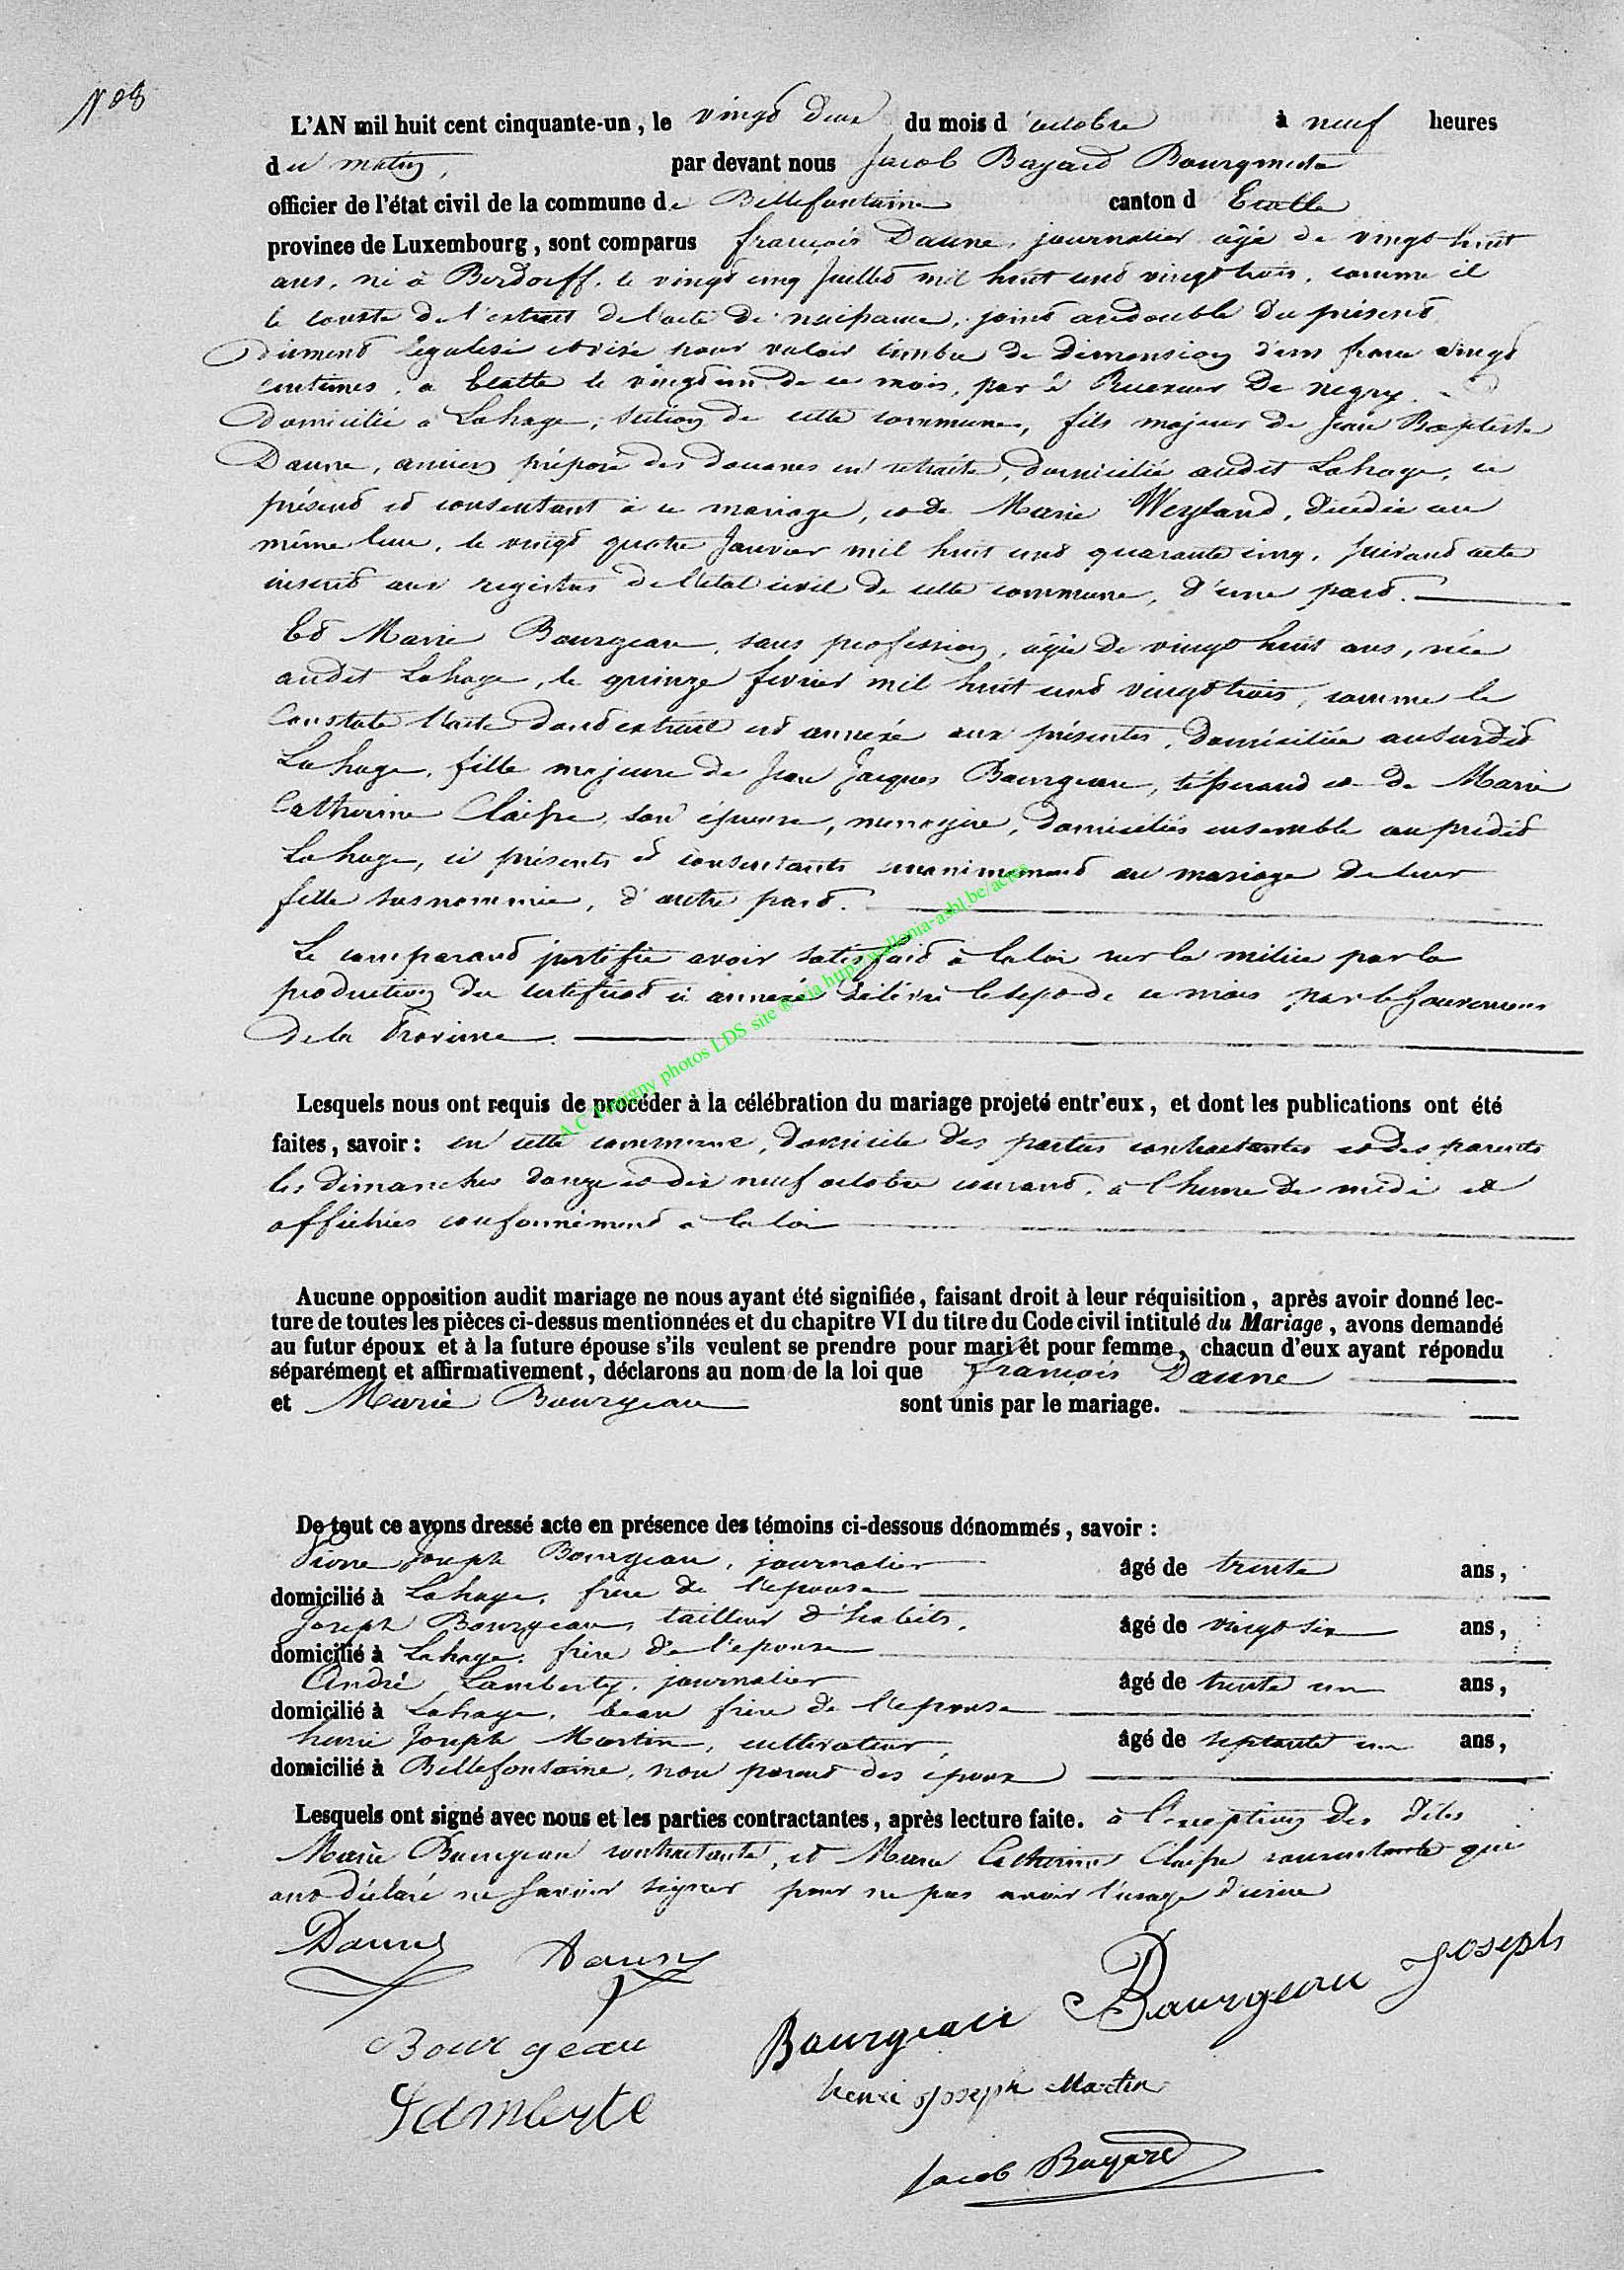 N° 8
L'AN mil huit cent cinquante-un, le vingt deux du mois d'octobre à neuf heures
du matin, par devant nous Jacob Bayard Bourgmestre
officier de l'état civil de la commune de Bellefontaine canton d Etalle
province de Luxembourg, sont comparus françois Daune, journalier âgé de vingt huit
ans, né à Berdorff, le vingt cinq Juillet mil huit cent vingt trois, comme il
le conste de l'extrait de l'acte de naissance, joint au double du présent
dûment légalisé et visé pour valoir timbre de dimension d'un franc vingt
centimes, a Etalle le vingt un de ce mois, par le Receveur De
Domicilié à Lahage, section de cette commune, fils majeur de Jean Baptiste
Daune, ancien préposé des douanes en retraite, domicilié audit Lahage, ci
présent et consentant à ce mariage, et de Marie Weyland, décédée au
même lieu, le vingt quatre Janvier mil huit cent quarante cinq, suivant acte
inscrit aux registres de l'état civil de cette commune, d'une part.
Et Marie Bourgeau, sans profession, âgée de vingt huit ans, née
audit Lahage, le quinze fevrier mil huit cent vingt trois, comme le
Constate l'acte dont extrait est annexé aux présentes, Domiciliée au susdit
Lahage, fille majeure de Jean Jacques Bourgeau, tisserand et de Marie
Catherine Claisse, son épouse, menagère, domiciliés ensemble au prédit
Lahage, ci présents et consentants unanimement au mariage de leur
fille susnommée, d'autre part.
Le comparant justifie avoir satisfait à la loi sur la milice par la
production du certificat ci annexé délivré le sept de ce mois par le Gouverneur
de la Province.
Lesquels nous ont requis de procéder à la célébration du mariage projeté entr'eux, et dont les publications ont été
faites, savoir : en cette commune, domicile des parties contractantes et des parents
les dimanches douze et dix neuf octobre courant, à l'heure de midi et
affichées conformément à la loi
Aucune opposition audit mariage ne nous ayant été signifiée, faisant droit à leur réquisition, après avoir donné lec-
ture de toutes les pièces ci-dessus mentionnées et du chapitre VI du titre du Code civil intitulé du Mariage, avons demandé
au futur époux et à la future épouse s'ils veulent se prendre pour mari et pour femme, chacun d'eux ayant répondu
séparément et affirmativement, déclarons au nom de la loi que françois Daune
et Marie Bourgeau sont unis par le mariage.
De tout ce avons dressé acte en présence des témoins ci-dessous dénommés, savoir :
Pierre Joseph Bourgeau, journalier âgé de trente ans,
domicilié à Lahage, frère de l'epouse
Joseph Bourgeau, tailleur d'habits, âgé de vingt six ans,
domicilié à Lahage, frère de l'epouse
André Lamberty, journalier âgé de trente un ans,
domicilié à Lahage, beau frère de l'epouse
henri Joseph Martin, cultivateur, âgé de septante un ans,
domicilié à Bellefontaine, non parent des epoux
Lesquels ont signé avec nous et les parties contractantes, après lecture faite. à l'exception des dites
Marie Bourgeau contractante, et Marie Catherine Claisse consentante qui
ont déclaré ne savoir signer pour ne pas avoir l'usage d'ecrire
Daune Daune
Bourgeau Bourgeau Bourgeau Joseph
Lamberte henri Joseph Martin
Jacob Bayard
photos LDS site ® via http://wallonia-asbl.be/actes